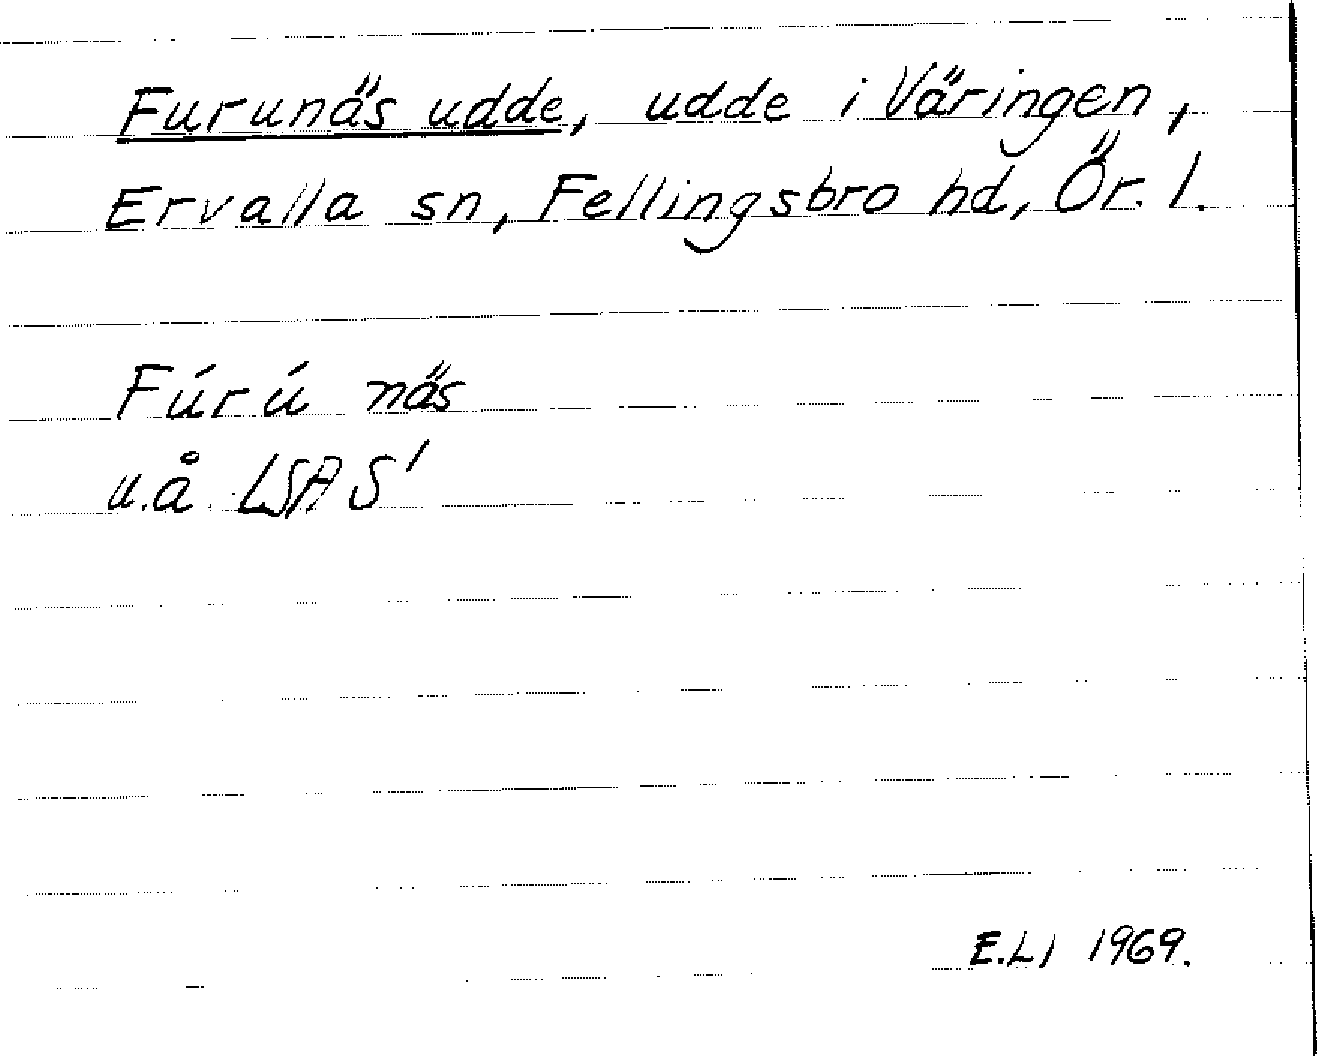 Furunäs udde, udde i Väringen,
Ervalla sn, Fellingsbro hd, Ör. l.
Fúrú näs
u.å. LSA S1
E.LJ 1969.